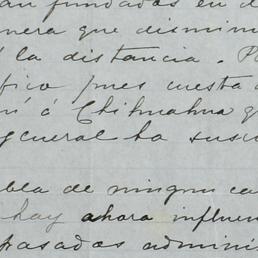 an fundados en d
nera que disminu
á la distancia. P
fico pues cuesta
ó Chihuahua q
general ha susc
bla de ningun ca
hay ahora influen
pasadas admini